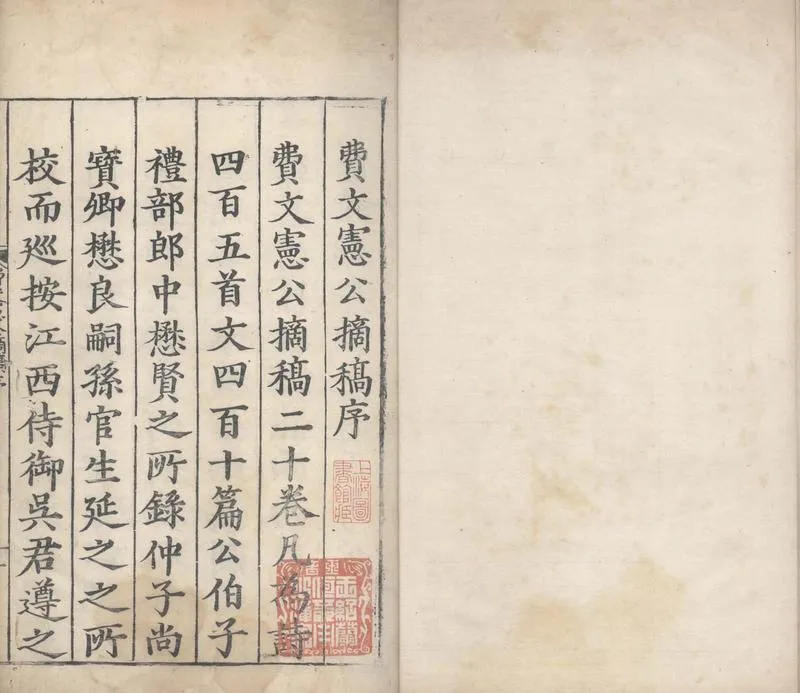 費文憲公摘稿序
費文憲公摘稿二十卷凡為詩
四百五首文四百十篇公伯子
禮部郎中懋賢之所錄仲子尚
寶卿懋良嗣孫官生延之之所
校而廵按江西侍御吳君遵之
上海圖
書館藏